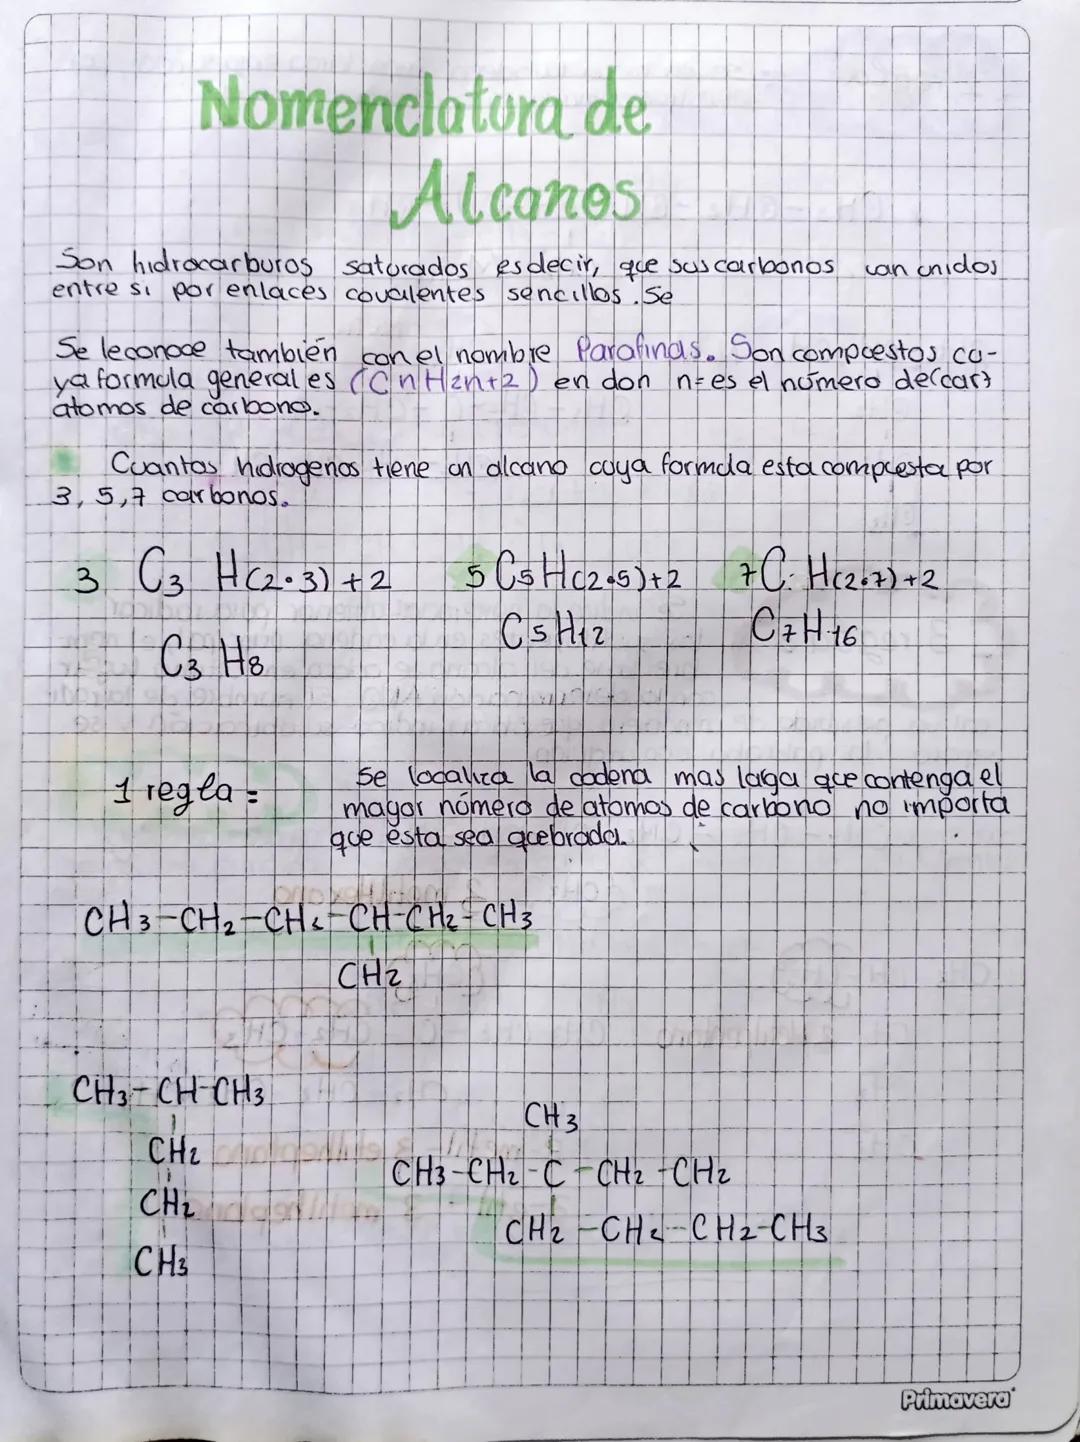 Nomenclatura de
Alcanos
Son hidrocarburos saturados es decir, que sus carbonos van unidos
entre si por enlaces covalentes sencillos. Se
Se le conoce también con el nombre Parafinas. Son compuestos cu-
ya formula general es (CnH2n+2) en don n= es el número de (car)
atomos de carbono.
Cuantos hidrogenos tiene un alcano cuya formula esta compuesta por
3, 5, 7 carbonos.
3 C3 H(2·3)+2 5 C5H(2·5)+2 7 C: H(2·7)+2
C3 H8 C5H12 C7H16
1 regla =
Se localiza la cadena mas larga que contenga el
mayor número de atomos de carbono no importa
que esta sea quebrada.
CH3-CH2-CH2-CH-CH2-CH3
CH2
CH3-CH-CH3
CH2
CH2
CH3
CH3
CH3-CH2-C-CH2-CH2
CH2-CH2-CH2-CH3
Primavera